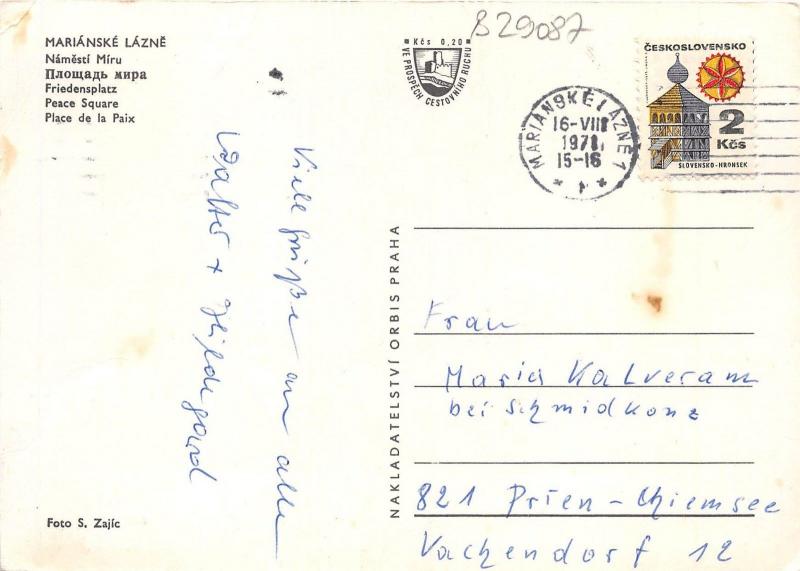 MARIÁNSKÉ LÁZNĚ
Náměstí Míru
Площадь мира
Friedensplatz
Peace Square
Place de la Paix
Viele Grüße an alle
Walter + Hildegard
Foto S. Zajíc
Kčs 0,20
VE PROSPĚCH CESTOVNÍHO RUCHU
829087
MARIÁNSKÉ LÁZNĚ 1
16-VIII
1971
15-16
ČESKOSLOVENSKO
2
Kčs
SLOVENSKO-HRONSEK
NAKLADATELSTVÍ ORBIS PRAHA
Frau
Maria Kalveram
bei Schmidkonz
821 Prien - Chiemsee
Vachendorf 12